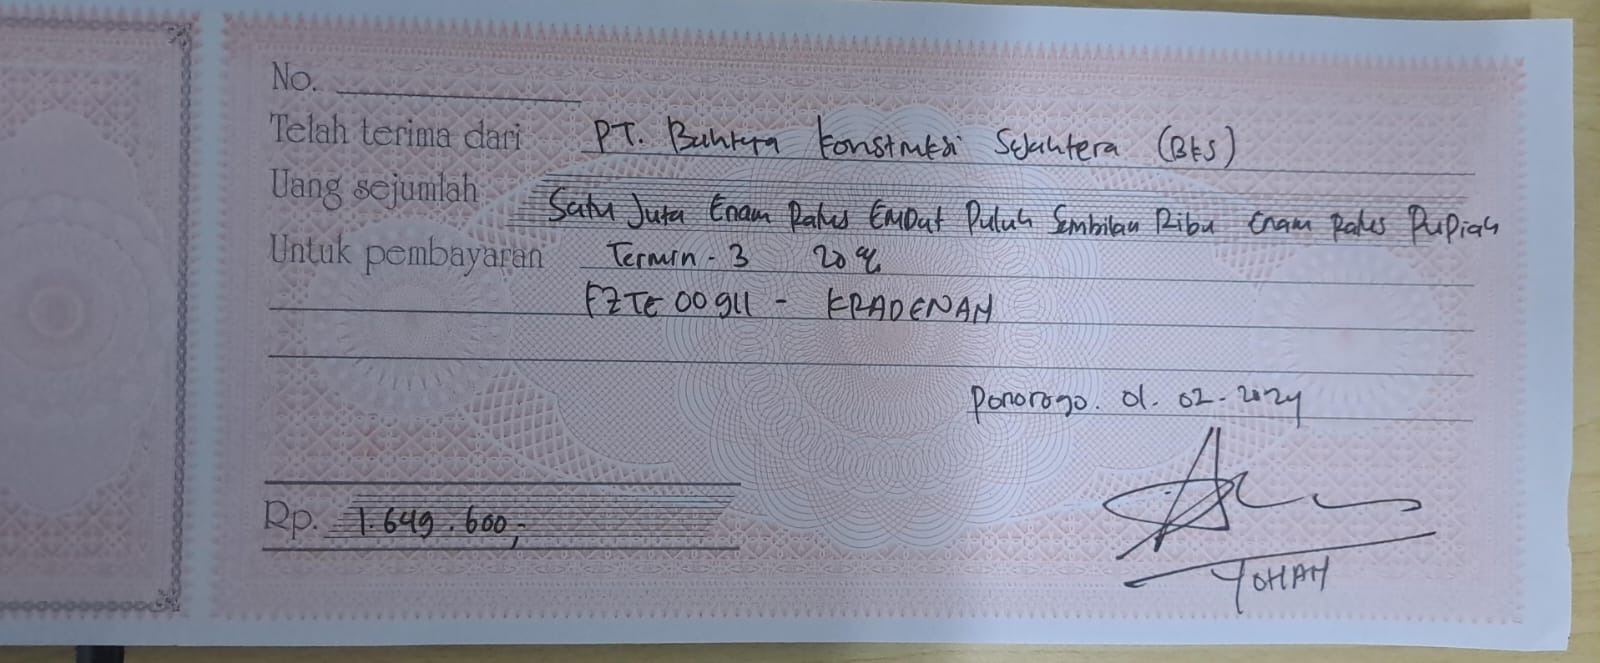 No.
Telah terima dari PT. Bahtera Konstruksi Sejahtera (BKS)
Uang sejumlah Satu Juta Enam Ratus Empat Puluh Sembilan Ribu Enam Ratus Rupiah
Untuk pembayaran Termin - 3 20%
FZTE 00911 - KRADENAN
Ponorogo. 01. 02. 2024
Rp. 1.649.600,-
YOHAN